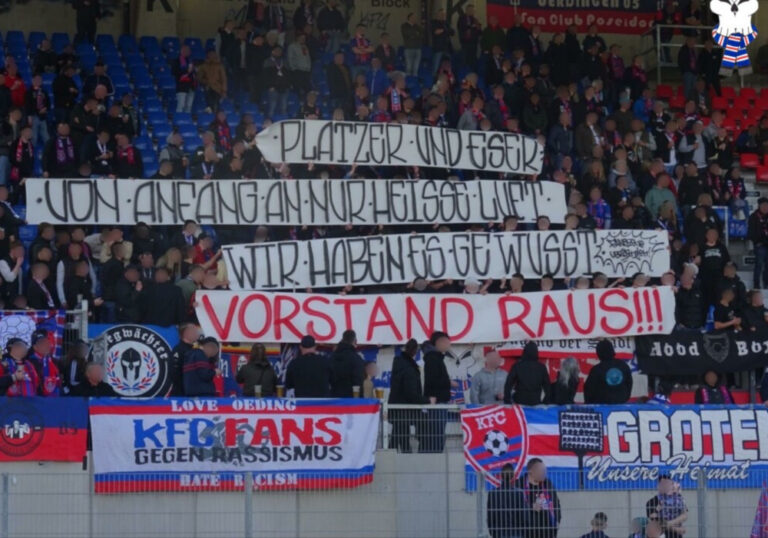 ÜERDINGEN
Fan Club Poseidon
Block
KFC
·PLATZER·UND·ESER·
·VON·ANFANG·AN·NUR·HEISSE·LUFT·
WIR·HABEN·ES·GEWUSST·
VORSTAND RAUS!!!
Hood Boy
LOVE OEDING
KFC FANS
GEGEN RASSISMUS
HATE RACISM
GROTE
Unsere Heimat